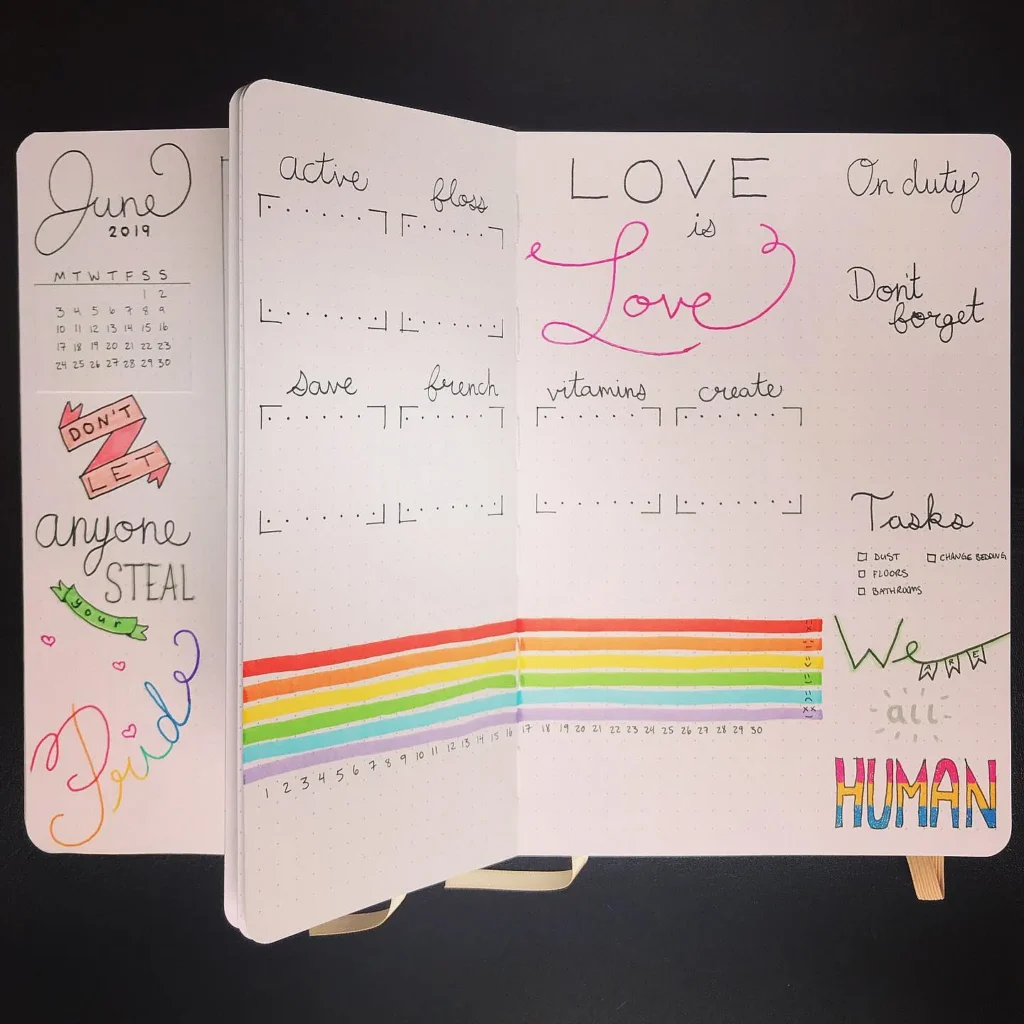 June
2019
M T W T F S S
1 2
3 4 5 6 7 8 9
10 11 12 13 14 15 16
17 18 19 20 21 22 23
24 25 26 27 28 29 30
DON'T
LET
anyone
STEAL
your
Pride
active
floss
save
french
LOVE
is
Love
vitamins
create
1 2 3 4 5 6 7 8 9 10 11 12 13 14 15 16 17 18 19 20 21 22 23 24 25 26 27 28 29 30
On duty
Don't
forget
Tasks
DUST
CHANGE BEDDING
FLOORS
BATHROOMS
We
ARE
all
HUMAN